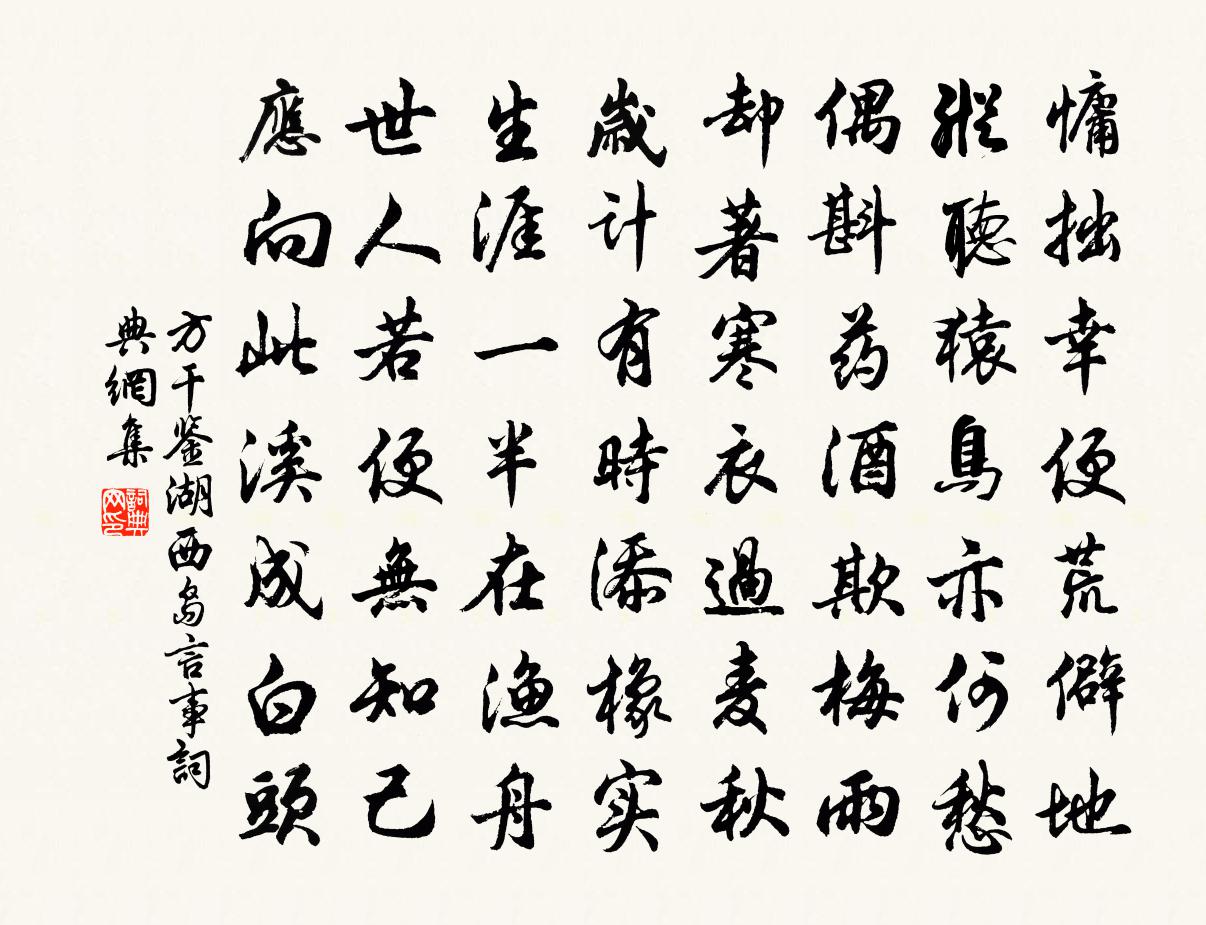 慵拙幸便荒僻地
縱聽猿鳥亦何愁
偶斟药酒欺梅雨
却著寒衣過麦秋
歲计有時添橡实
生涯一半在漁舟
世人若便無知己
應向此溪成白頭
方干鉴湖西岛言事詞
典網集
詞典网印